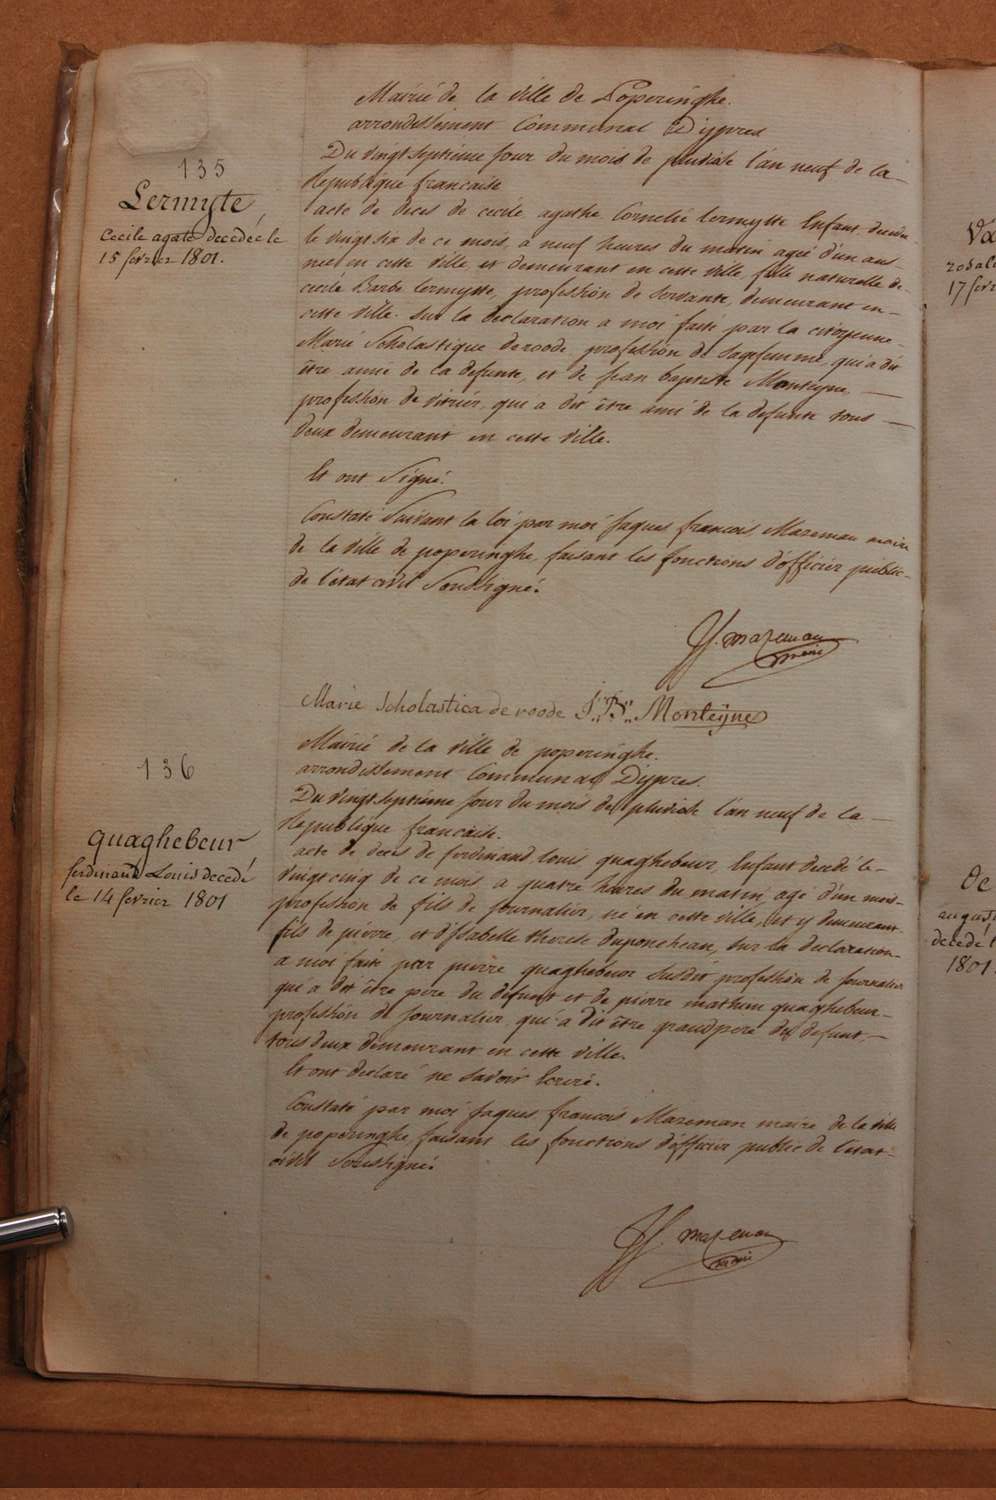 Mairié de la ville de Poperinghe.
arrondissement Communal Dijpres
135
Du vingt septieme jour du mois de pluviose l'an neuf de la
Republique francaise
Lermyte
Cecile agate decedée le
15 février 1801.
acte de deces de cecile agathe Cornelié Lermytte Enfant, decedé
le vingt six de ce mois, a neuf heures du matin agéé d'un ans
neé en cette ville, et demeurant en cette ville, fille naturelle de
cecilé Barbe Lermytte, profession de servante, demeurant en
cette ville. sur la declaration a moi faité par la citoyenne
Marié Scholastique deroode, profession de sagefemme, qui a dit
être amie de la defunte, et de jean baptiste Monteyne,
profession de vitrier, qui a dit être ami de la defunte tous
deux demeurant en cette ville.
Et ont Signé.
Constaté Suivant la loi par moi jaques francois Mazeman maire
de la ville de poperinghe, faisant les fonctions d'officier public
de l'état civil Soussigné.
JJ. mazeman
maire
Marie Scholastica de roode J: B: Monteÿne
Mairié de la ville de poperinghe.
136
arrondissement Communal Dijpres.
Du vingt septieme jour du mois de pluviose l'an neuf de la
Republique francaise.
quaghebeur
ferdinand Louis decedé
le 14 fevrier 1801
acte de deces de ferdinand louis quaghebeur, Enfant decedé le
vingt cinq de ce mois, a quatre heures du matin, agé d'un mois
profession de fils de journalier, né en cette ville, et y demeurant
fils de pierre, et d'Isabelle therese duponcheau, sur la declaration
a moi faite par pierre quaghebeur susdit profession de journalier
qui a dit être pere du defunt et de pierre mathieu quaghebeur
profession de journalier, qui a dit être grandpere du defunt,
tous deux demeurant en cette ville.
Et ont declaré ne savoir Ecrire.
Constaté par moi jaques francois Mazeman maire de la ville
de poperinghe, faisant les fonctions d'officier public de l'etat
civil Soussigné.
JJ. mazeman
maire
17 fevr
De
august
decedé l
1801.